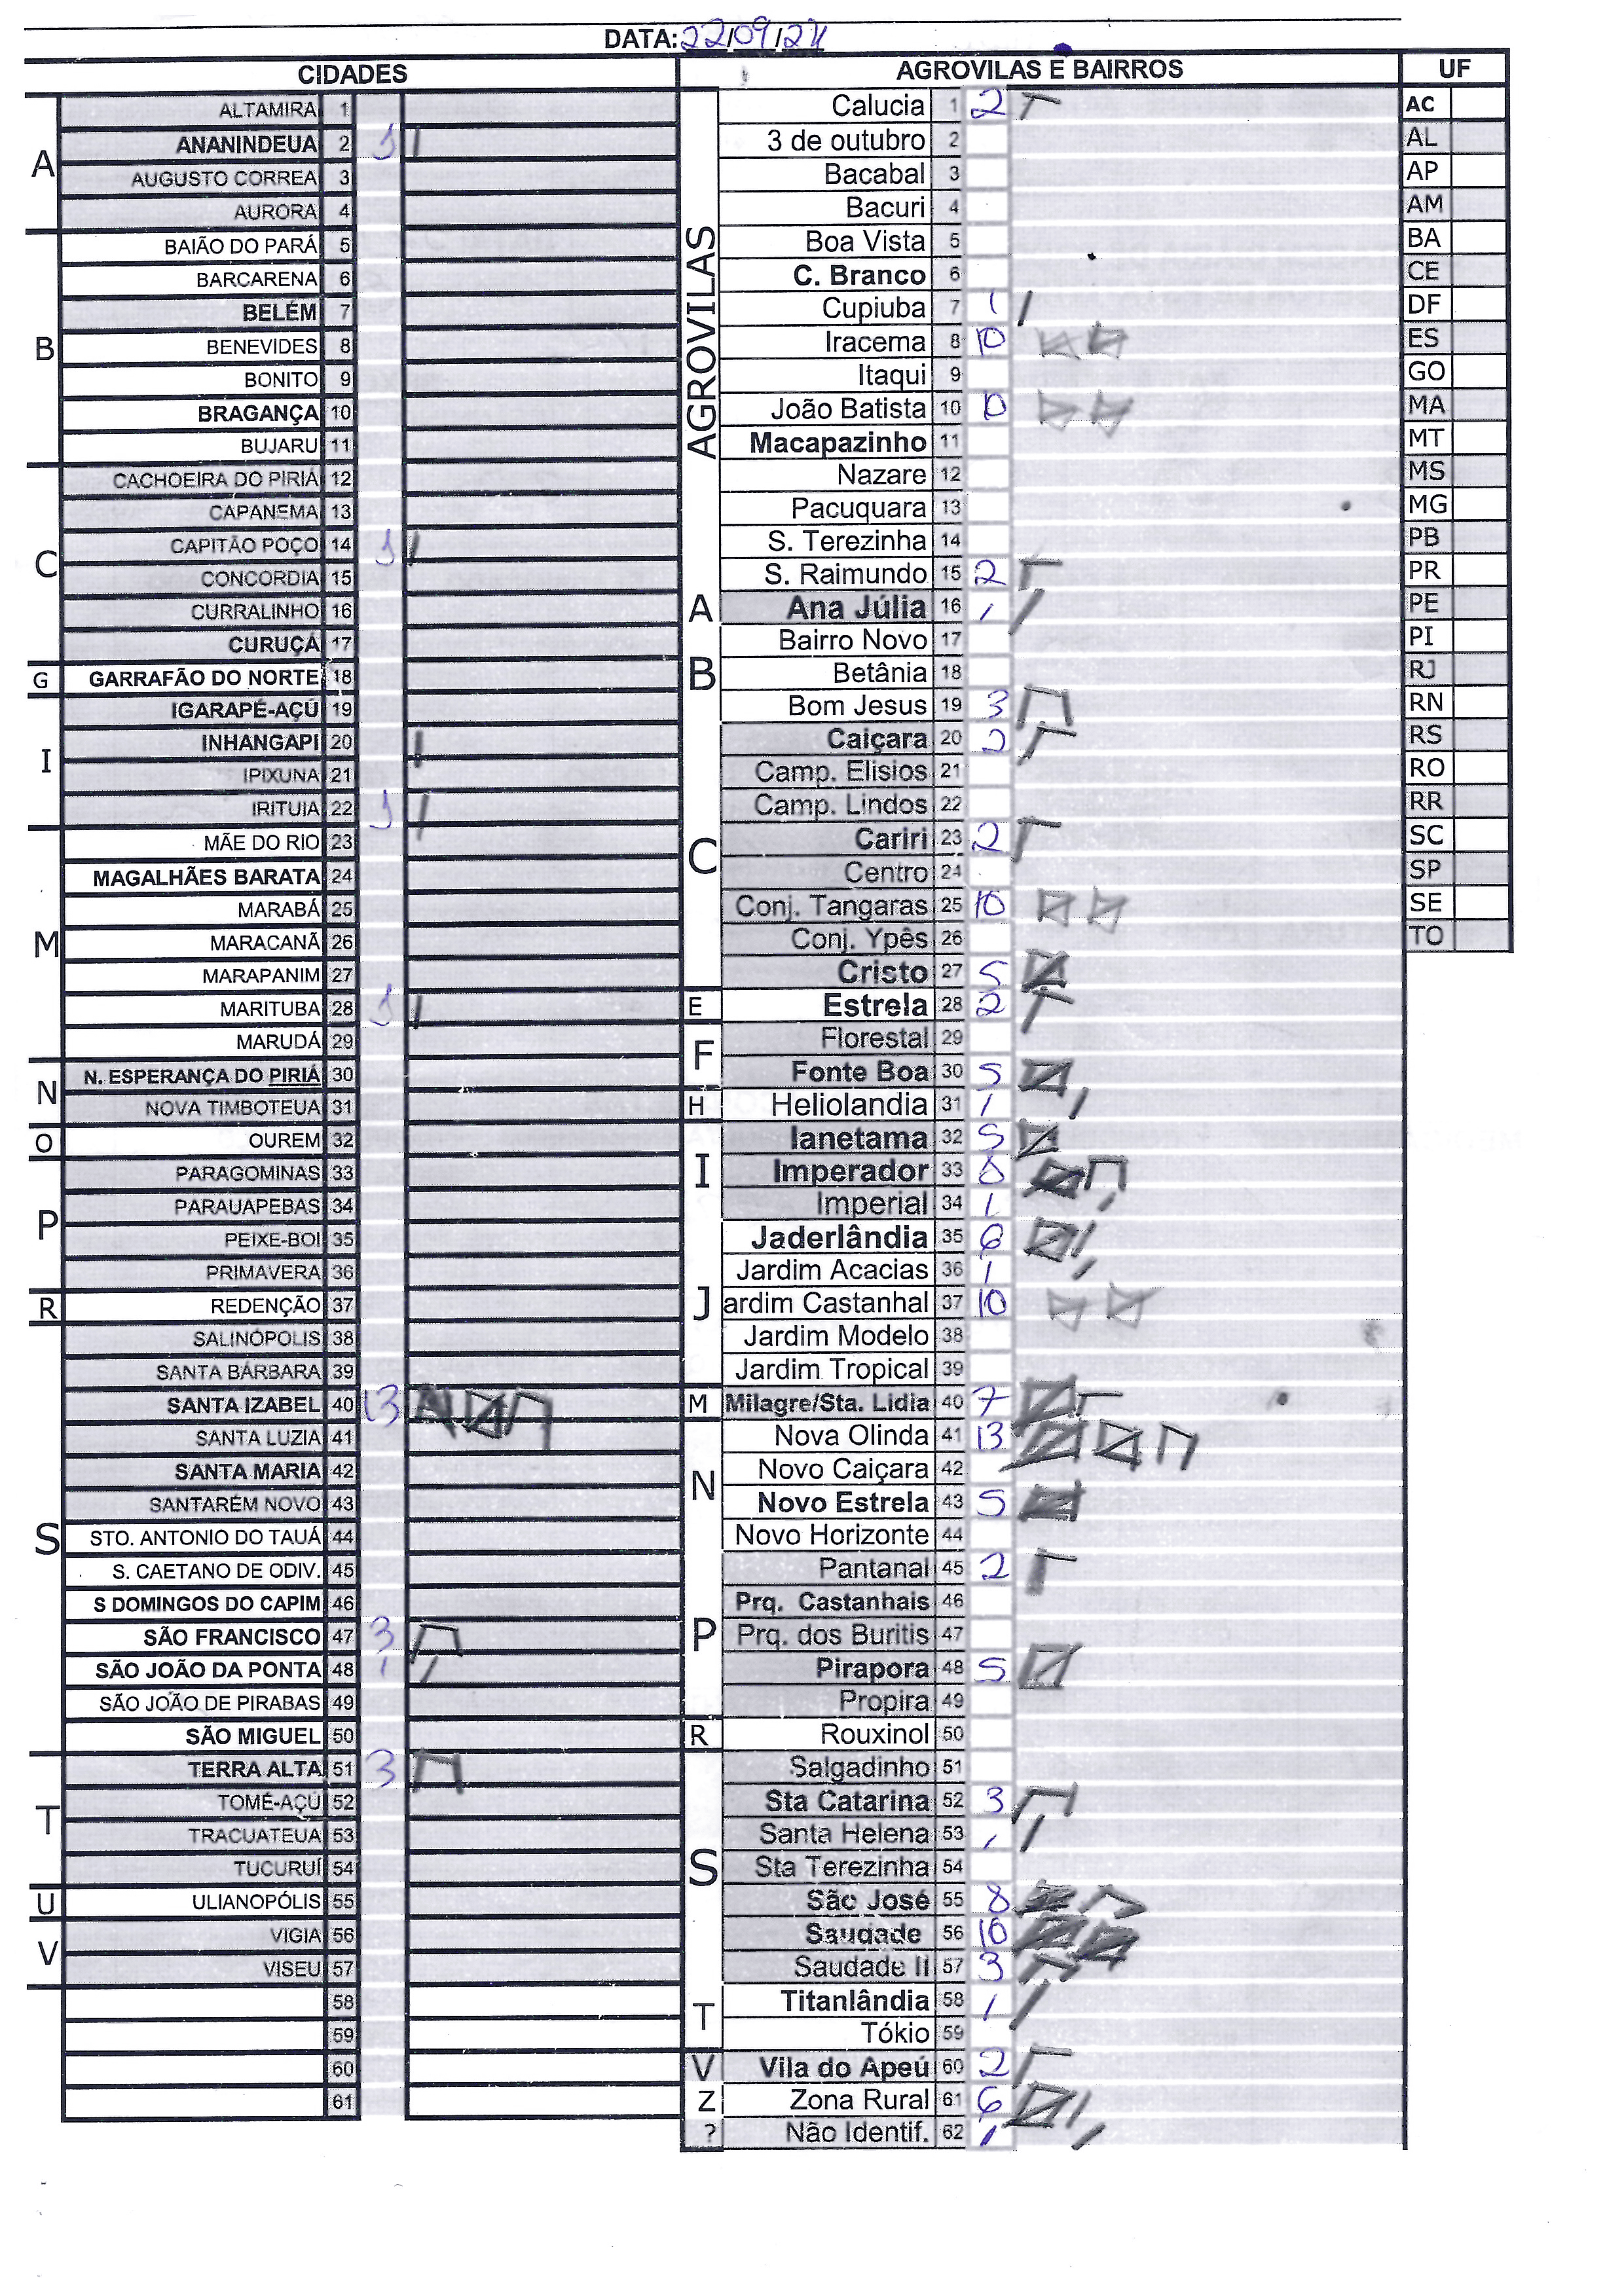 DATA: 22/09/24
CIDADES
A
ALTAMIRA 1
ANANINDEUA 2 1
AUGUSTO CORREA 3
AURORA 4
B
BAIÃO DO PARÁ 5
BARCARENA 6
BELÉM 7
BENEVIDES 8
BONITO 9
BRAGANÇA 10
BUJARU 11
C
CACHOEIRA DO PIRIÁ 12
CAPANEMA 13
CAPITÃO POÇO 14 1
CONCORDIA 15
CURRALINHO 16
CURUÇÁ 17
G
GARRAFÃO DO NORTE 18
I
IGARAPÉ-AÇÚ 19
INHANGAPI 20
IPIXUNA 21
IRITUIA 22 1
M
MÃE DO RIO 23
MAGALHÃES BARATA 24
MARABÁ 25
MARACANÃ 26
MARAPANIM 27
MARITUBA 28 1
MARUDÁ 29
N
N. ESPERANÇA DO PIRIÁ 30
NOVA TIMBOTEUA 31
O
OUREM 32
P
PARAGOMINAS 33
PARAUAPEBAS 34
PEIXE-BOI 35
PRIMAVERA 36
R
REDENÇÃO 37
S
SALINÓPOLIS 38
SANTA BÁRBARA 39
SANTA IZABEL 40 13
SANTA LUZIA 41
SANTA MARIA 42
SANTARÉM NOVO 43
STO. ANTONIO DO TAUÁ 44
S. CAETANO DE ODIV. 45
S DOMINGOS DO CAPIM 46
SÃO FRANCISCO 47 3
SÃO JOÃO DA PONTA 48 1
SÃO JOÃO DE PIRABAS 49
SÃO MIGUEL 50
T
TERRA ALTA 51 3
TOMÉ-AÇÚ 52
TRACUATEUA 53
TUCURUÍ 54
U
ULIANOPÓLIS 55
V
VIGIA 56
VISEU 57
58
59
60
61
AGROVILAS E BAIRROS
AGROVILAS
Calucia 1 2
3 de outubro 2
Bacabal 3
Bacuri 4
Boa Vista 5
C. Branco 6
Cupiuba 7 1
Iracema 8 10
Itaqui 9
João Batista 10 10
Macapazinho 11
Nazare 12
Pacuquara 13
S. Terezinha 14
S. Raimundo 15 2
A
Ana Júlia 16 1
B
Bairro Novo 17
Betânia 18
Bom Jesus 19 3
C
Caiçara 20 2
Camp. Elisios 21
Camp. Lindos 22
Cariri 23 2
Centro 24
Conj. Tangaras 25 10
Conj. Ypês 26
Cristo 27 5
E
Estrela 28 2
F
Florestal 29
Fonte Boa 30 5
H
Heliolandia 31 1
I
Ianetama 32 5
Imperador 33 8
Imperial 34 1
J
Jaderlândia 35 6
Jardim Acacias 36 1
ardim Castanhal 37 10
Jardim Modelo 38
Jardim Tropical 39
M
Milagre/Sta. Lidia 40 7
N
Nova Olinda 41 13
Novo Caiçara 42
Novo Estrela 43 5
Novo Horizonte 44
P
Pantanal 45 2
Prq. Castanhais 46
Prq. dos Buritis 47
Pirapora 48 5
Propira 49
R
Rouxinol 50
S
Salgadinho 51
Sta Catarina 52 3
Santa Helena 53 1
Sta Terezinha 54
São José 55 8
Saudade 56 10
Saudade II 57 3
T
Titanlândia 58 1
Tókio 59
V
Vila do Apeú 60 2
Z
Zona Rural 61 6
?
Não Identif. 62 1
UF
AC
AL
AP
AM
BA
CE
DF
ES
GO
MA
MT
MS
MG
PB
PR
PE
PI
RJ
RN
RS
RO
RR
SC
SP
SE
TO